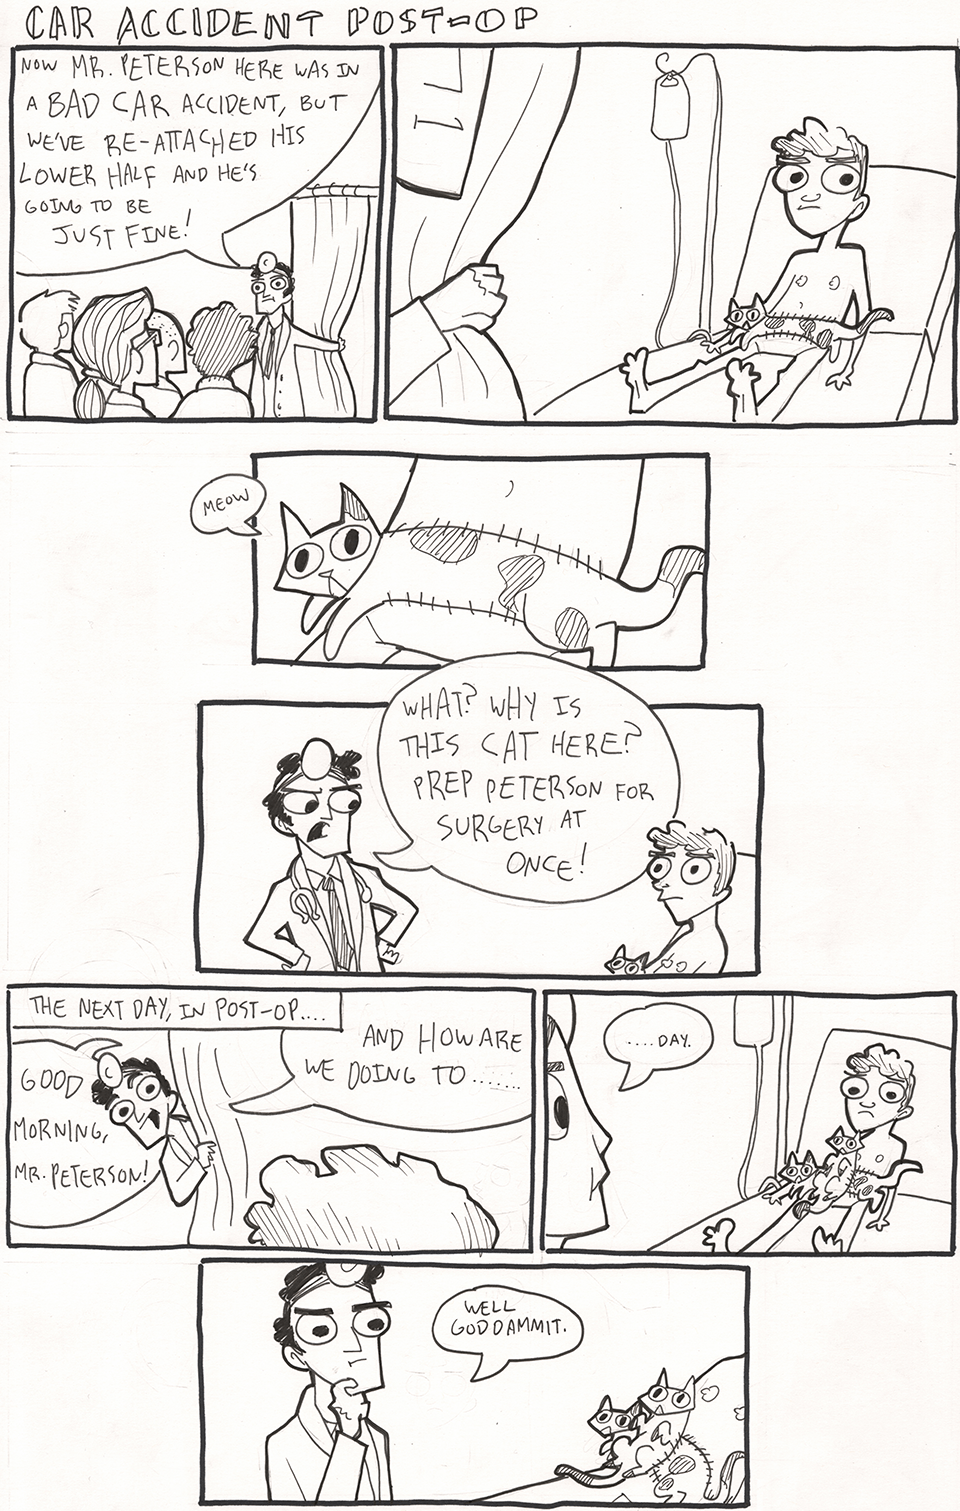 CAR ACCIDENT POST-OP
NOW MR. PETERSON HERE WAS IN
A BAD CAR ACCIDENT, BUT
WE'VE RE-ATTACHED HIS
LOWER HALF AND HE'S
GOING TO BE
JUST FINE!
71
MEOW
WHAT? WHY IS
THIS CAT HERE?
PREP PETERSON FOR
SURGERY AT
ONCE!
THE NEXT DAY, IN POST-OP....
GOOD
MORNING,
MR. PETERSON!
AND HOW ARE
WE DOING TO.......
....DAY.
WELL
GODDAMMIT.